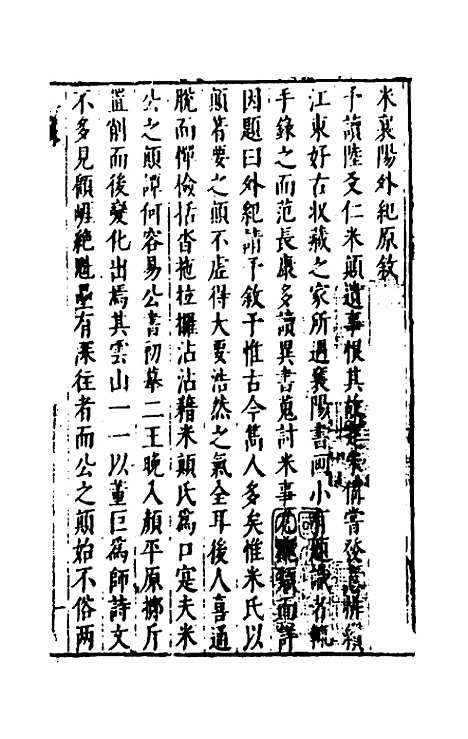 米襄陽外紀原敘
予讀陸友仁米顛遺事恨其故實未備嘗發意排纘
江東好古收藏之家所遇襄陽書画小有題識者輒
手錄之而范長康多讀異書蒐討米事尤類而詳
因題曰外紀請予敘予惟古今雋人多矣惟米氏以
顛著要之顛不虛得大要浩然之氣全耳後人喜通
脫而憚檢括沓拖拉攞沾沾藉米顛氏爲口寔夫米
公之顛譚何容易公書初摹二王晚入顏平原擲斤
置削而後變化出焉其雲山一一以董巨爲師詩文
不多見顧崛絕魁壘有深往者而公之顛始不俗兩